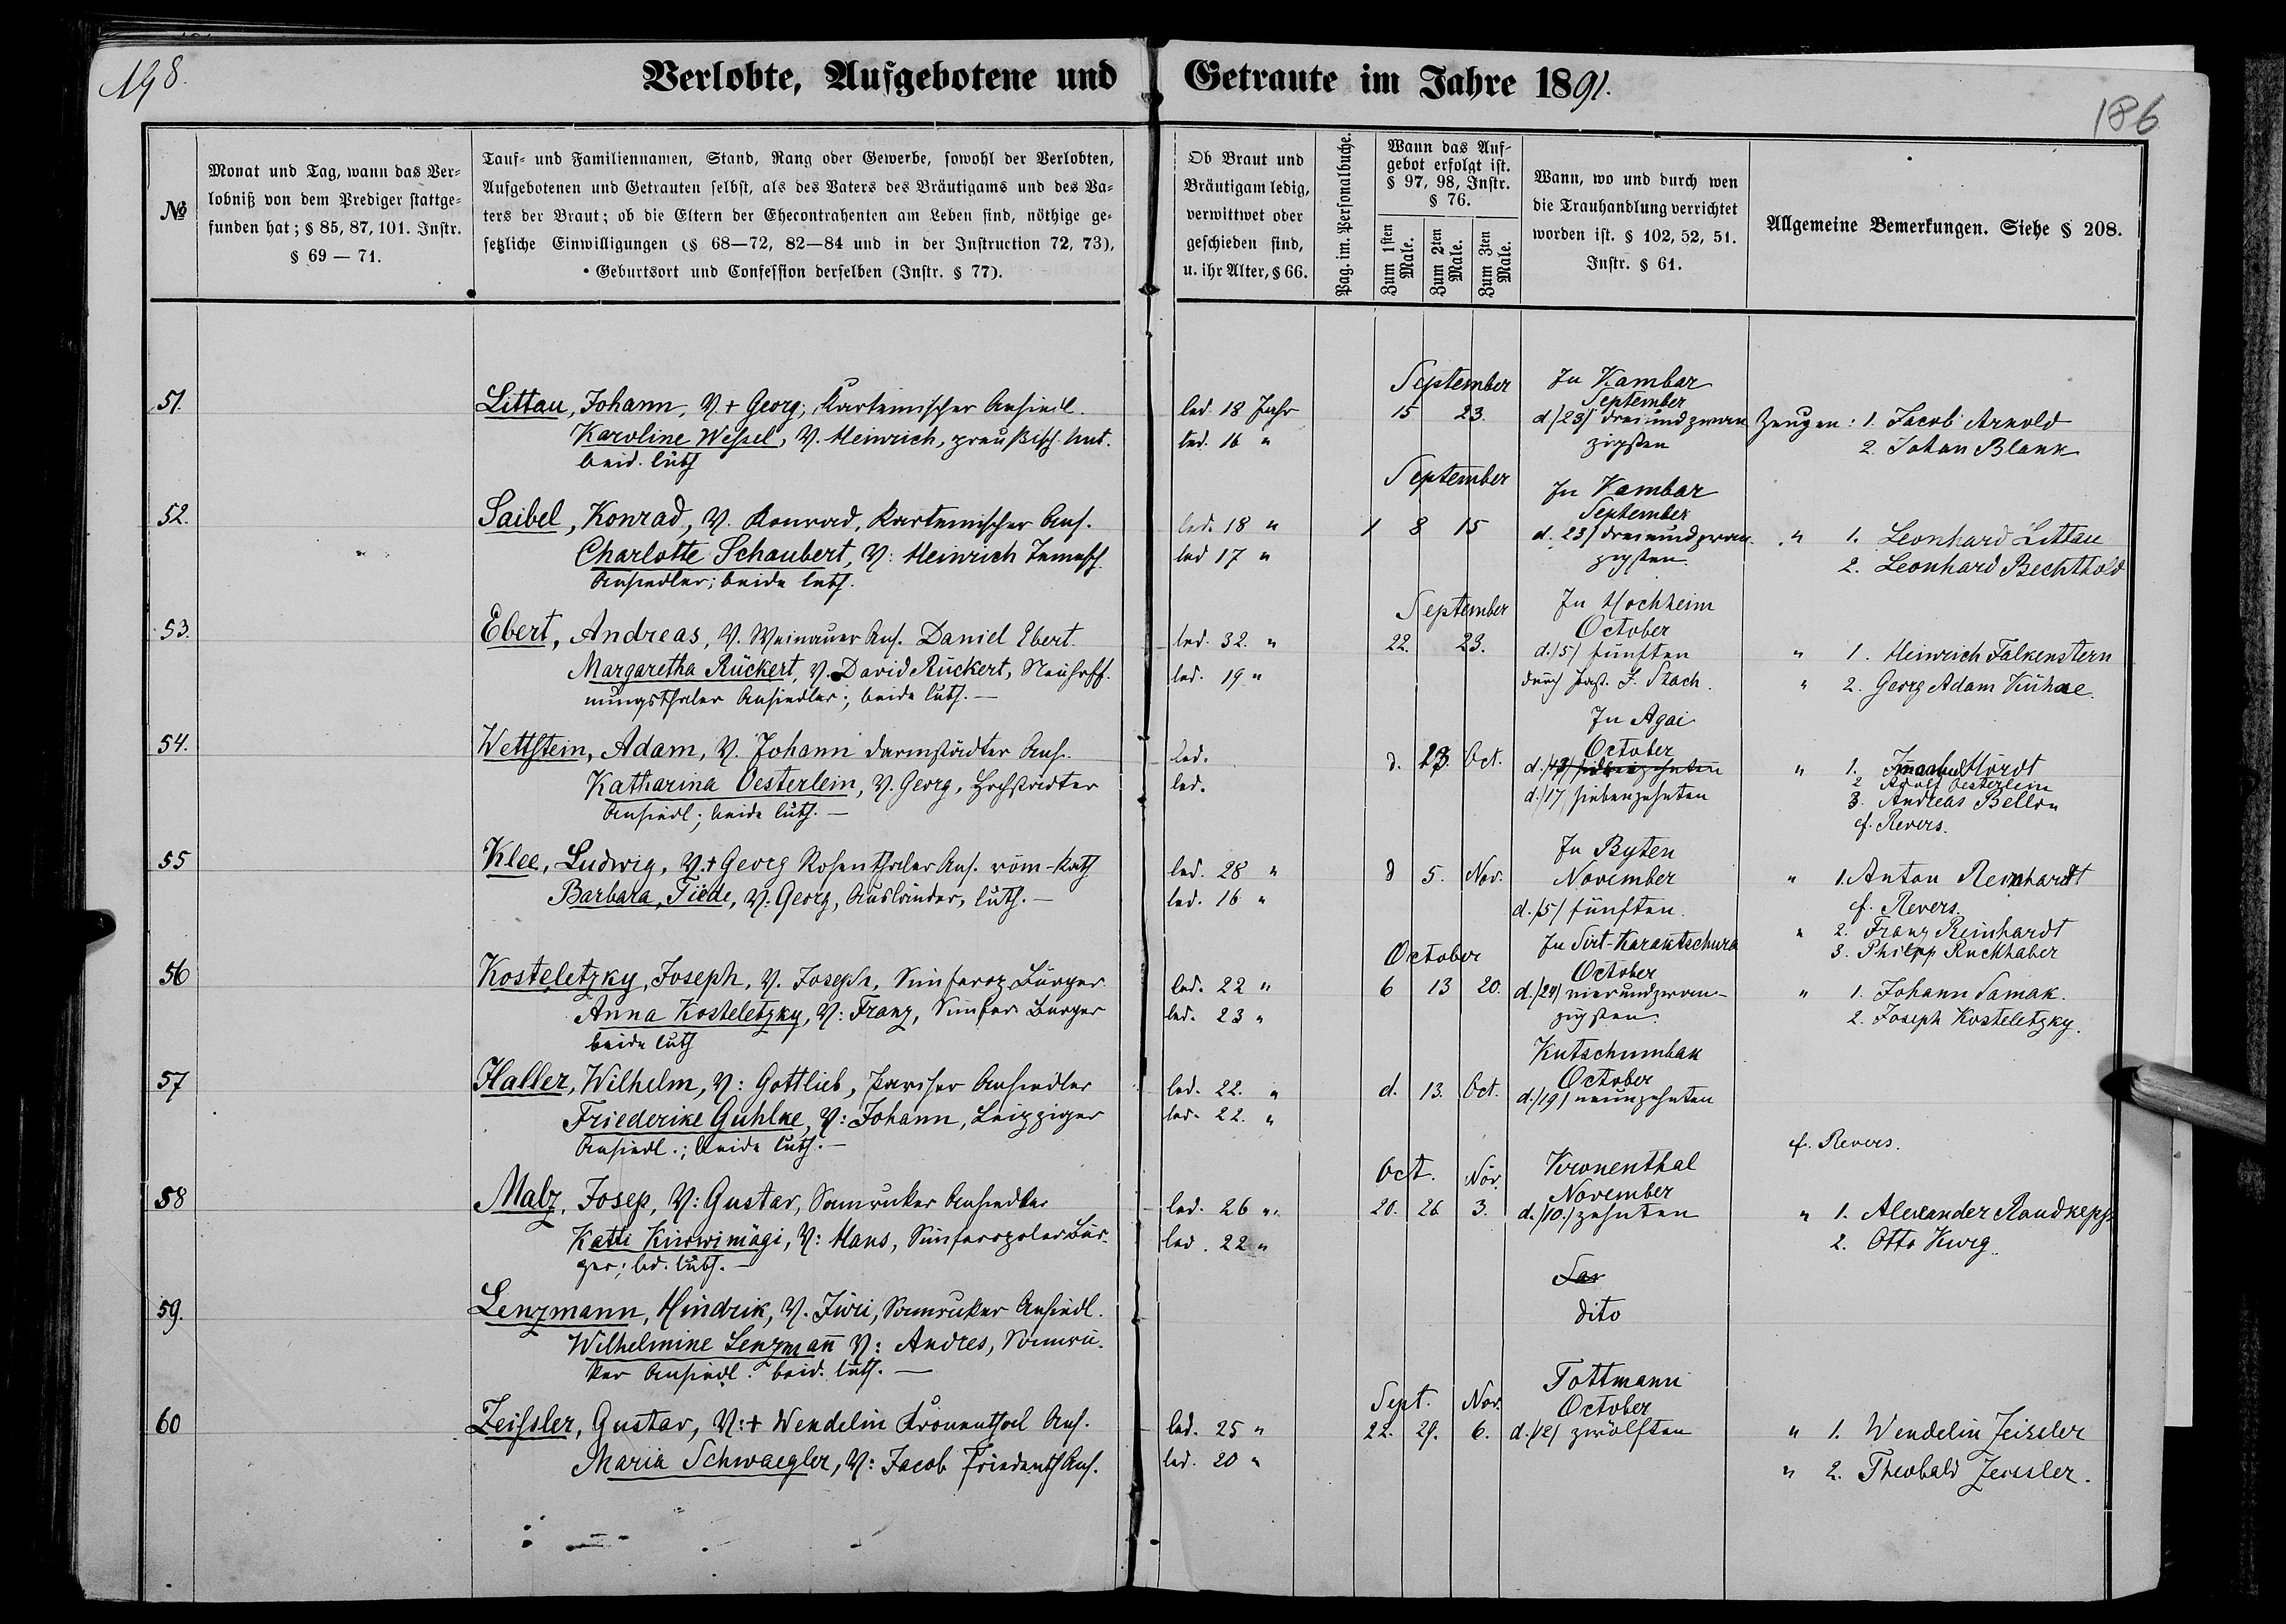 198.
Verlobte, Aufgebotene und Getraute im Jahre 1891.
186
№
Monat und Tag, wann das Ver-
lobniß von dem Prediger stattge-
funden hat; § 85, 87, 101. Instr.
§ 69 — 71.
Tauf- und Familiennamen, Stand, Rang oder Gewerbe, sowohl der Verlobten,
Aufgebotenen und Getrauten selbst, als des Vaters des Bräutigams und des Va-
ters der Braut; ob die Eltern der Ehecontrahenten am Leben sind, nöthige ge-
setzliche Einwilligungen (§ 68—72, 82—84 und in der Instruction 72, 73),
Geburtsort und Confession derselben (Instr. § 77).
Ob Braut und
Bräutigam ledig,
verwittwet oder
geschieden sind,
u. ihr Alter, § 66.
Pag. im. Personalbuche.
Wann das Auf-
gebot erfolgt ist.
§ 97, 98, Instr.
§ 76.
Zum 1sten Male.
Zum 2ten Male.
Zum 3ten Male.
Wann, wo und durch wen
die Trauhandlung verrichtet
worden ist. § 102, 52, 51.
Instr. § 61.
Allgemeine Bemerkungen. Siehe § 208.
51.
Littau, Johann, V. + Georg, Ansiedl.
Karoline Wessel, V. Heinrich, preußisch. Unt.
beid. luth
led. 18 Jahr
led. 16 "
September
15 23.
In Kambar
September
d./23/ dreiundzwan
zigsten
Zeugen: 1. Jacob Arnold
2. Johan Blank
52.
Saibel, Konrad, V. Konrad, Ans.
Charlotte Schaubert, V: Heinrich
Ansiedler; beide luth.
led. 18 "
led 17 "
September
1 8 15
In Kambar
September
d. 23/ dreiundzwan-
zigsten
" 1. Leonhard Littau
2. Leonhard Bechthold
53.
Ebert, Andreas, V. Weinauer Ans. Daniel Ebert.
Margaretha Rückert, V. David Rückert, Neuhoff-
nungsthaler Ansiedler; beide luth. —
led. 32. "
led. 19 "
September
22. 23.
In Hochheim
October
d./5/ fünften
durch Past. J. Stach.
" 1. Heinrich Falkenstern
" 2. Georg Adam Kühne.
54.
Wettstein, Adam, V. Johann darmstädter Ans.
Katharina Oesterlein, V. Georg, Hochstädter
Ansiedl; beide luth. —
led.
led.
d. 13. Oct.
In Agai
October
d./17/ siebenzehnten
" 1. Imanuel Hördt
2 Adolf Oesterlein
3. Andreas Bellon
cf. Revers.
55
Klee, Ludwig, V. + Georg Rosenthaler Ans. röm-kath
Barbara, Tiede, V. Georg, Ausländer, luth. —
led. 28 "
led. 16 "
d 5. Nov.
In Byten
November
d./5/ fünften.
" 1. Anton Reinhardt
cf. Revers.
" 2. Franz Reinhardt
3. Philipp Ruckhaber
56
Kosteletzky, Joseph, V. Joseph, Simferop. Bürger
Anna Kosteletzky, V: Franz, Simfer. Bürger
beide luth
led. 22 "
led. 23 "
October
6 13 20.
In Sirt-Karaktschura
October
d./24/ vierundzwan-
zigsten.
" 1. Johann Samak.
2. Joseph Kosteletzky.
57
Haller, Wilhelm, V: Gottlieb, Pariser Ansiedler
Friederike Guhlke, V: Johann, Leipziger
Ansiedl.; beide luth. —
led. 22. "
led. 22. "
d. 13. Oct.
Kutschumbak
October
d./19/ neunzehnten
cf. Revers.
58
Malz, Josep, V: Gustav, Samruker Ansiedler
Katti Kurwimägi, V: Hans, Simferopoler Bür-
ger; bd. luth. —
led. 26 "
led. 22 "
Oct. Nov.
20. 26. 3.
Kronenthal
November
d./10./ zehnten
" 1. Alexander Raudkepp
2. Otto Kurg.
59.
Lenzmann, Hindrik, V. Jüri, Samruker Ansiedl.
Wilhelmine Lenzmann V: Andres, Samru-
ker Ansiedl. beid. luth. —
dito
60
Zeissler, Gustav, V: + Wendelin Kronenthal Ans.
Maria Schwaegler, V: Jacob Friedenth Ans.
led. 25 "
led. 20 "
Sept. Nov.
22. 29. 6.
Tottmann
October
d./12/ zwölften
" 1. Wendelin Zeissler
" 2. Theobald Zeissler.